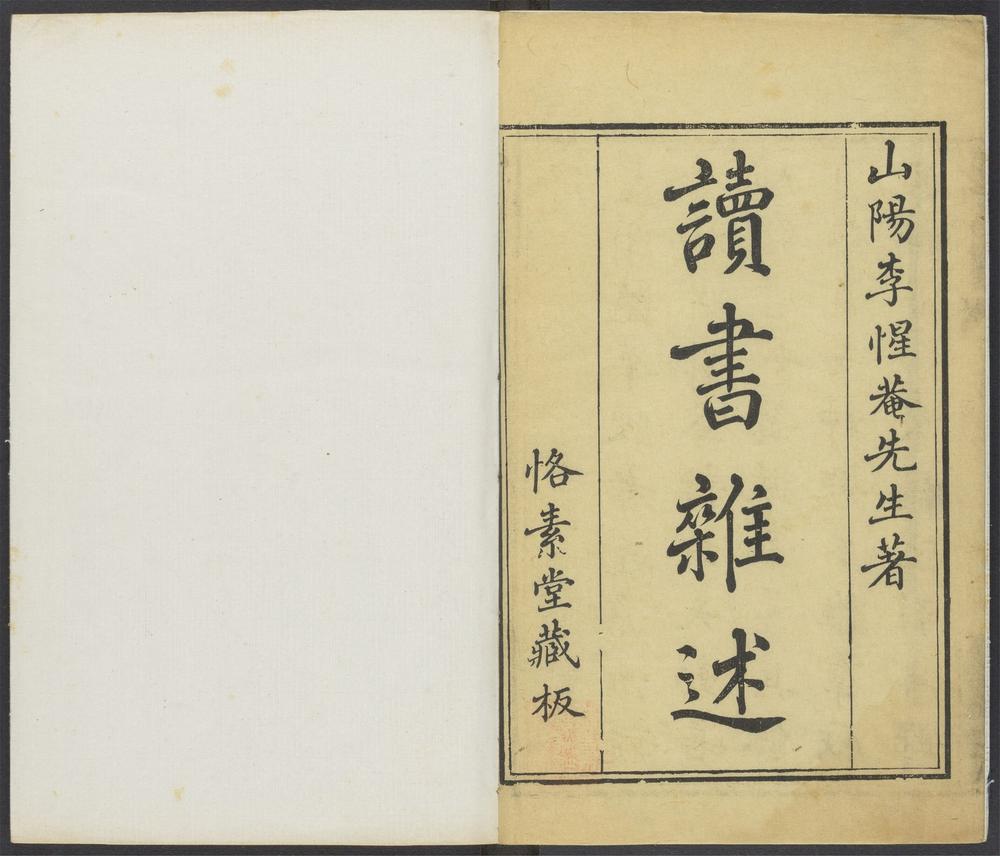 山陽李惺菴先生著
讀書雜述
恪素堂藏板